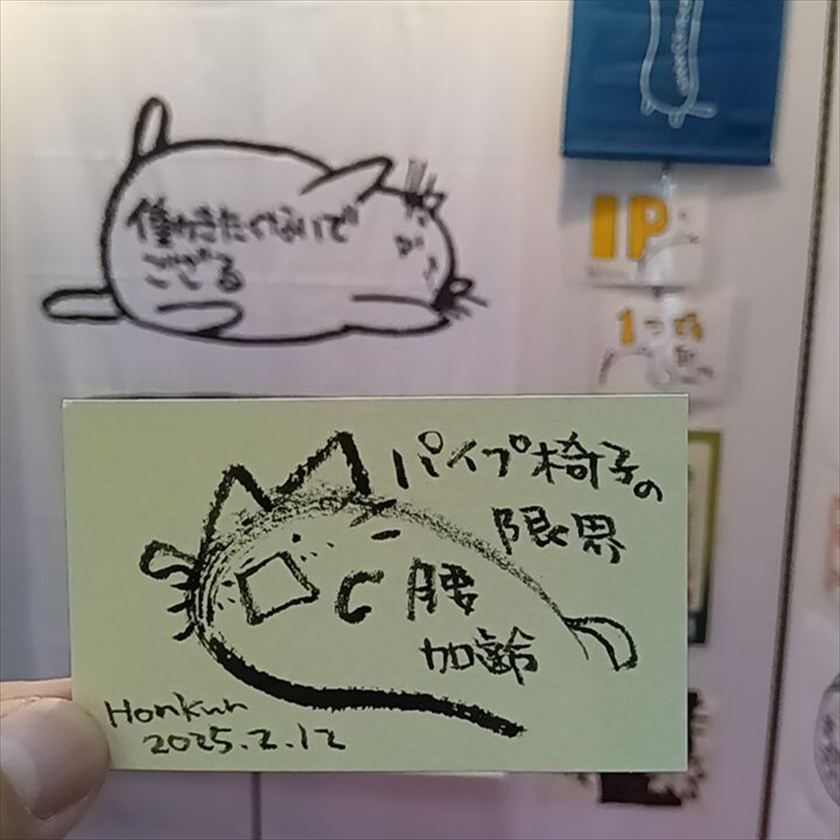 働きたくないで
ござる
IP
パイプ椅子の
限界
腰
加齢
Honkun
2025.2.12